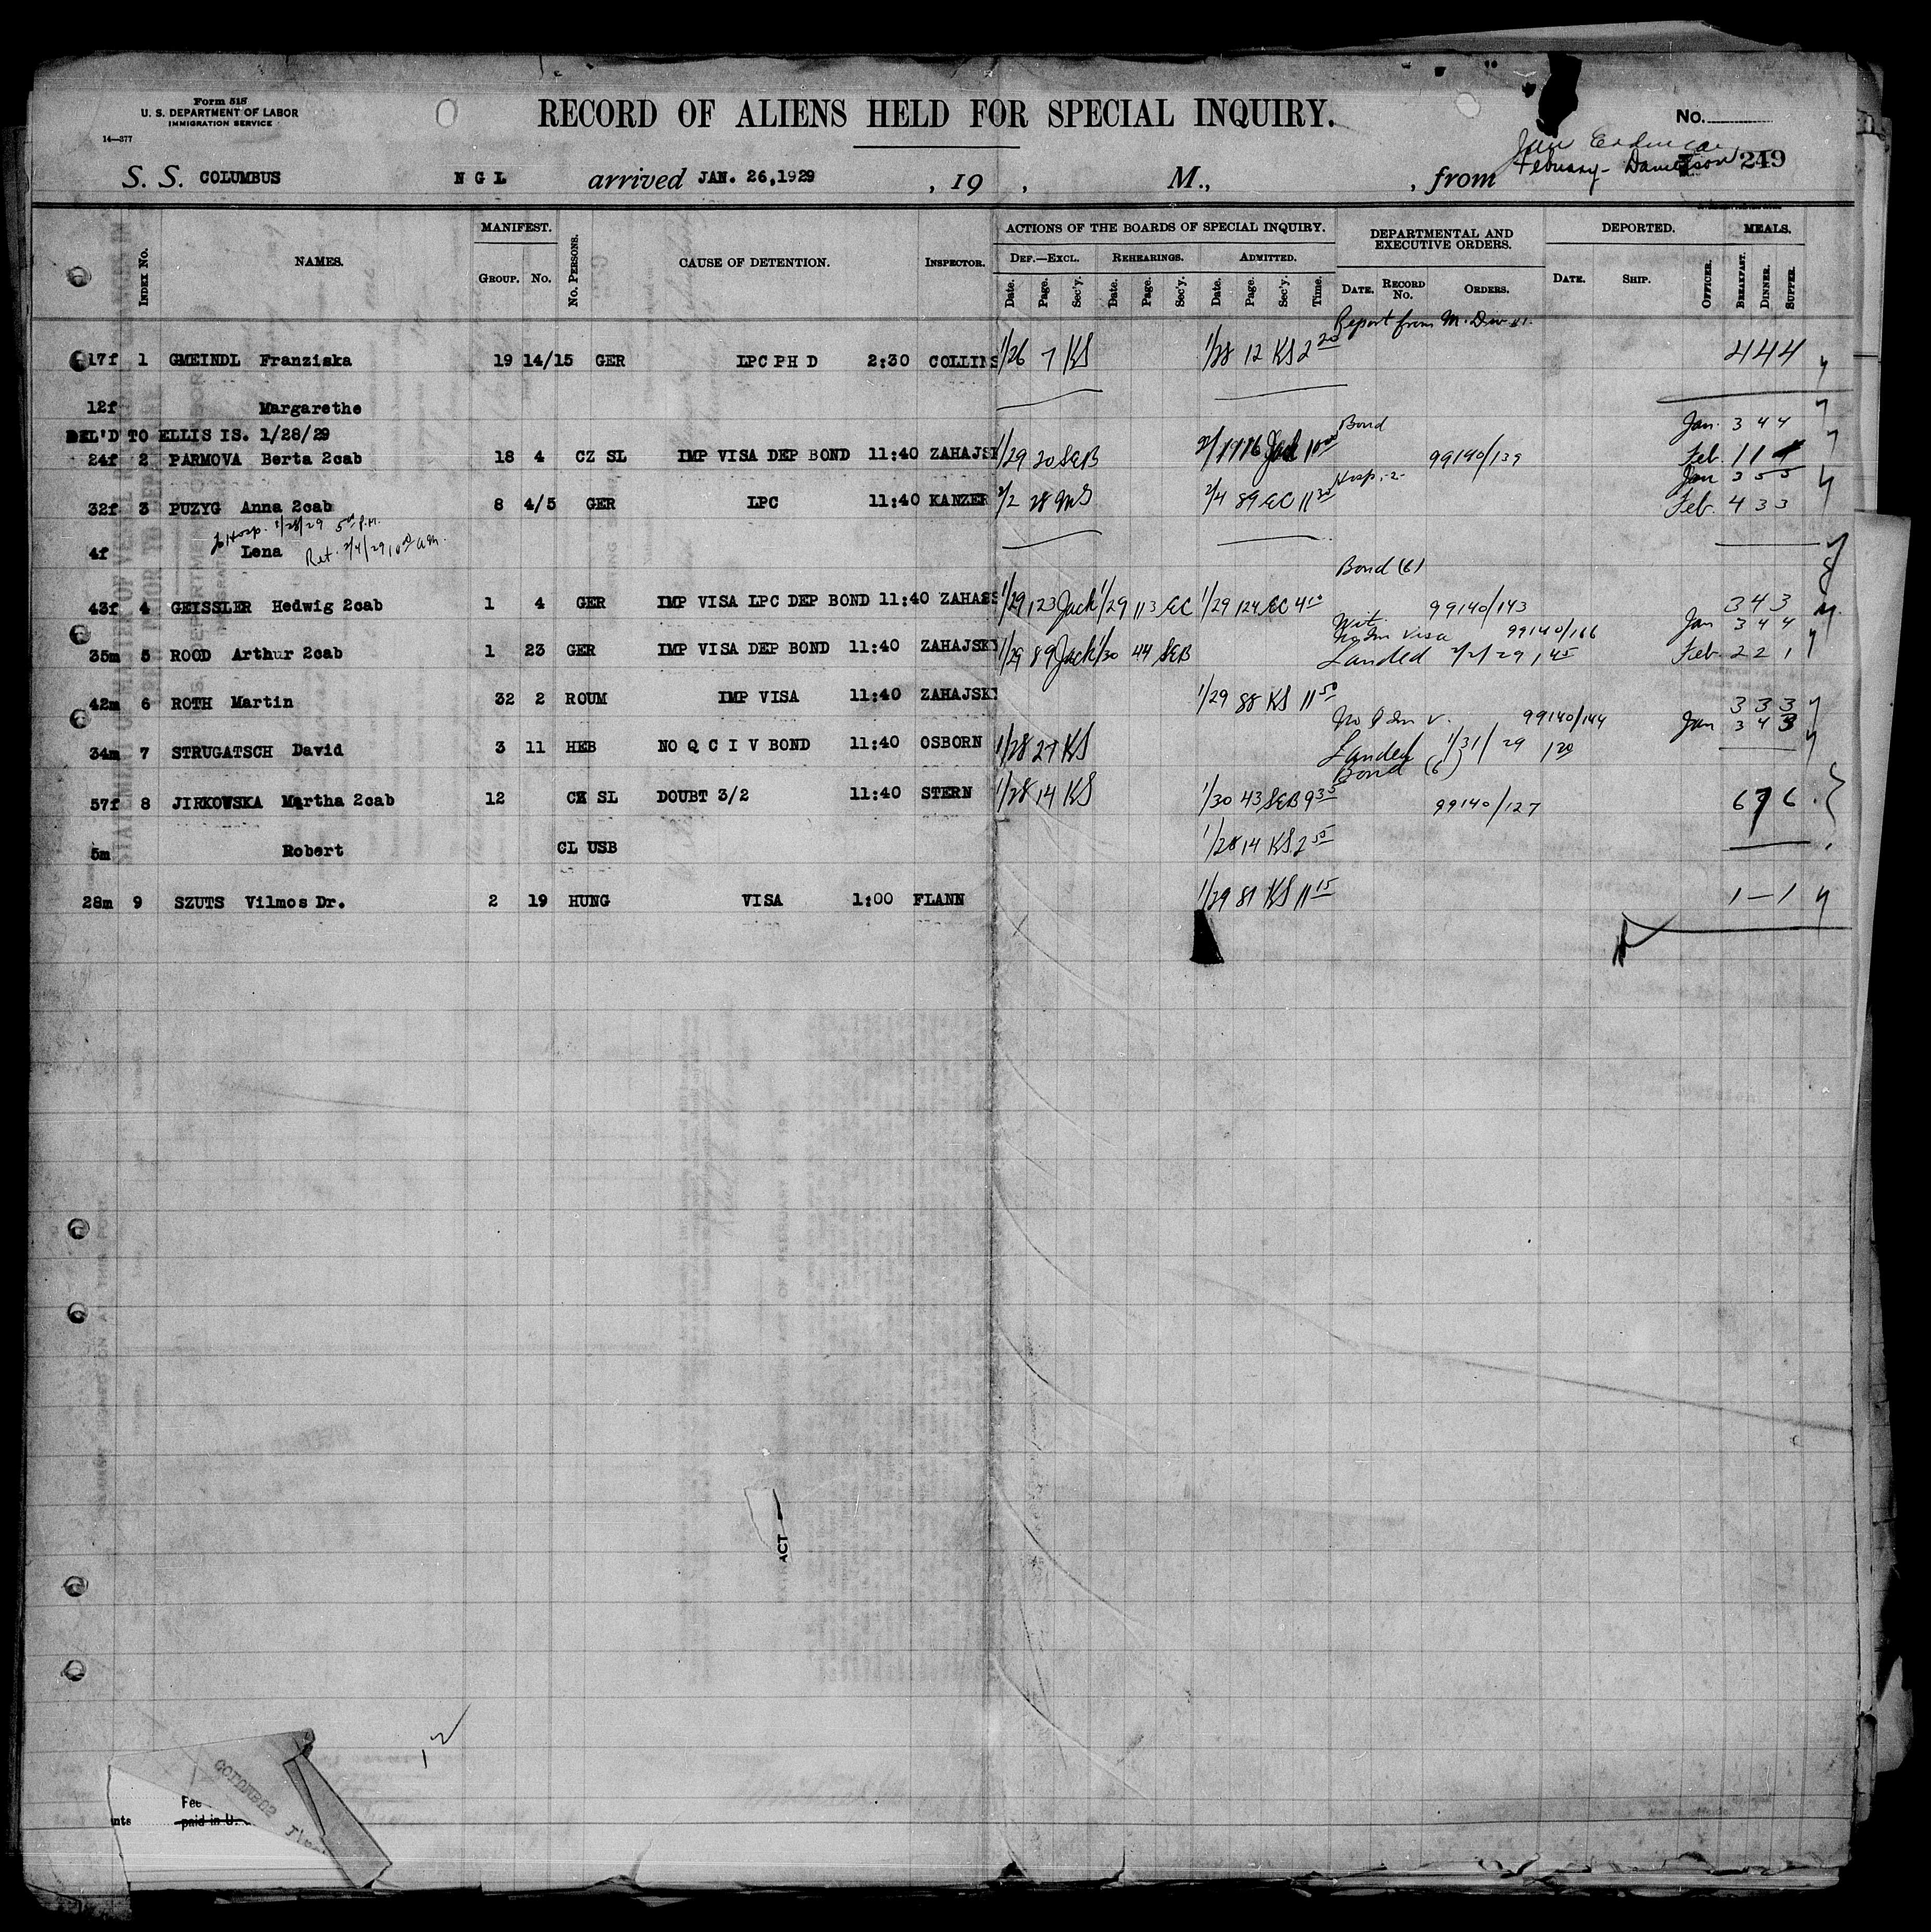 Form 518
U. S. DEPARTMENT OF LABOR
IMMIGRATION SERVICE
14—377
RECORD OF ALIENS HELD FOR SPECIAL INQUIRY.
No.
249
S. S. COLUMBUS N G L arrived JAN. 26,1929 , 19 , M., , from
February-
Index No. NAMES. MANIFEST. Group. No. No. Persons. CAUSE OF DETENTION. Inspector.
ACTIONS OF THE BOARDS OF SPECIAL INQUIRY. DEPARTMENTAL AND EXECUTIVE ORDERS. DEPORTED. MEALS.
Def.—Excl. Rehearings. Admitted.
Date. Page. Sec'y. Date. Page. Sec'y. Date. Page. Sec'y. Time. Date. Record No. Orders. Date. Ship. Officer. Breakfast. Dinner. Supper.
Report from M.
17f 1 GMEINDL Franziska 19 14/15 GER LPC PH D 2:30 COLLINS 1/26 7 KS 1/28 12 KS 2 20 4 4 4
12f Margarethe
DEL'D TO ELLIS IS. 1/28/29
Bond Jan. 3 4 4
24f 2 PARMOVA Berta 2cab 18 4 CZ SL IMP VISA DEP BOND 11:40 ZAHAJS 1/29 20 SEB 99140/139 Feb. 1 1
Hosp.-2- Jan 3 5 5
32f 3 PUZYG Anna 2cab 8 4/5 GER LPC 11:40 KANZER 2/2 28 MS 2/4 89 EC 11 30 Feb. 4 3 3
To Hosp. 1/28/29 5 P.M.
4f Lena Ret. 2/4/29 10 a.m.
Bond (6)
43f 4 GEISSLER Hedwig 2cab 1 4 GER IMP VISA LPC DEP BOND 11:40 ZAHASS 1/29 123 Jack 1/29 113 EC 1/29 124 EC 4 10 99140/143 3 4 3
visa 99140/166 Jan 3 4 4
35m 5 ROOD Arthur 2cab 1 23 GER IMP VISA DEP BOND 11:40 ZAHAJSKY 1/29 89 Jack 1/30 44 SEB Landed 2/2/29 1 45 Feb 2 2 1
42m 6 ROTH Martin 32 2 ROUM IMP VISA 11:40 ZAHAJSKY 1/29 88 KS 11 50 3 3 3
99140/144 Jan 3 4 3
34m 7 STRUGATSCH David 3 11 HEB NO Q C I V BOND 11:40 OSBORN 1/28 27 KS Landed 1/31/29 1 20
Bond (6)
57f 8 JIRKOWSKA Martha 2cab 12 CZ SL DOUBT 3/2 11:40 STERN 1/28 14 KS 1/30 43 SEB 9 35 99140/127 6 7 6
5m Robert CL USB 1/28 14 KS 2 50
28m 9 SZUTS Vilmos Dr. 2 19 HUNG VISA 1:00 FLANN 1/29 81 KS 11 15 1 — 1
ACT
12
COLUMBUS
Fee
nts paid in U.